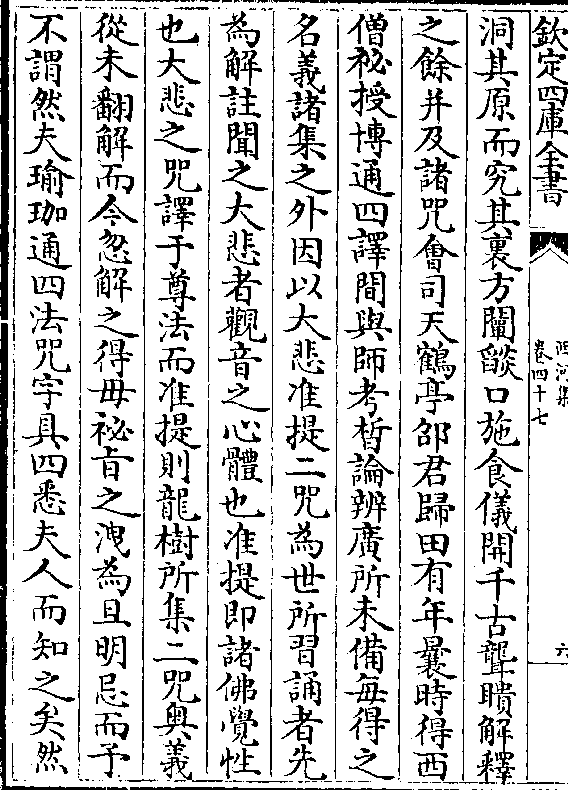 欽定四庫全書
西河集
卷四十七
六
洞其原而究其裏方闡燄口施食儀開千古聾瞶解釋
之餘并及諸咒會司天鶴亭邵君歸田有年曩時得西
僧祕授博通四譯間與師考晳論辨廣所未備每得之
名義諸集之外因以大悲准提二咒為世所習誦者先
為解註聞之大悲者觀音之心體也准提即諸佛覺性
也大悲之咒譯于尊法而准提則龍樹所集二咒奥義
從未翻解而今忽解之得毋祕㫖之洩為旦明忌而予
不謂然夫瑜珈通四法咒字具四悉夫人而知之矣然